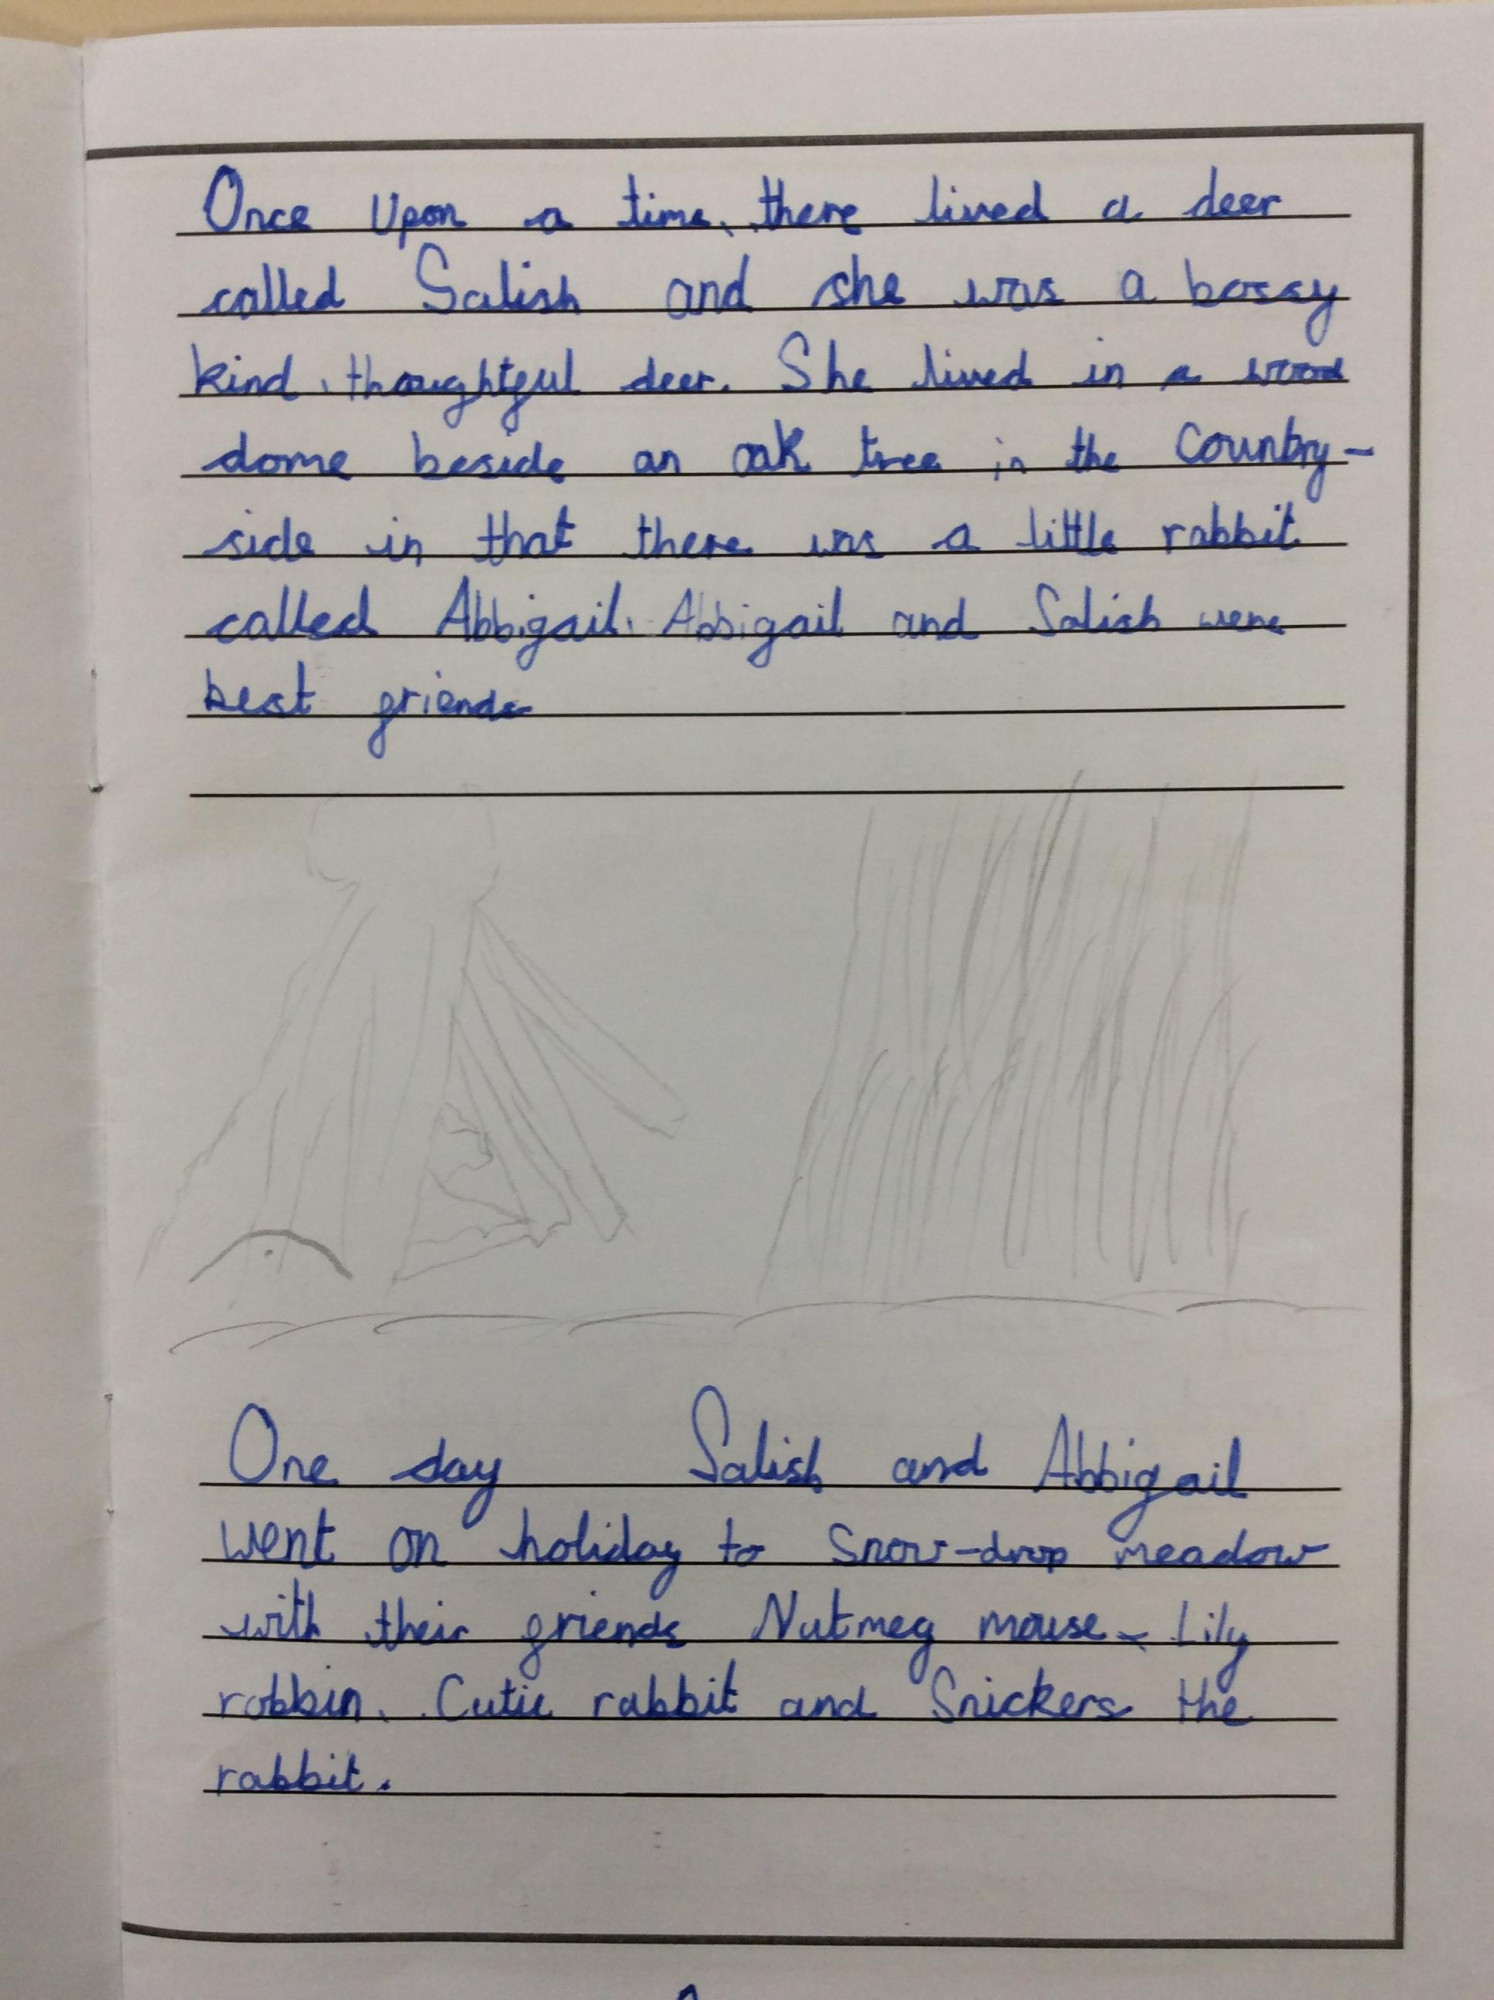 Once Upon a time, there lived a deer
called Salish and she was a bossy
kind, thoughtful deer. She lived in a wood
dome beside an oak tree in the Country-
side in that there was a little rabbit
called Abbigail. Abbigail and Salish were
best friends
One day Salish and Abbigail
went on holiday to Snow-drop meadow
with their friends Nutmeg mouse, Lily
robbin, Cutie rabbit and Snickers the
rabbit.